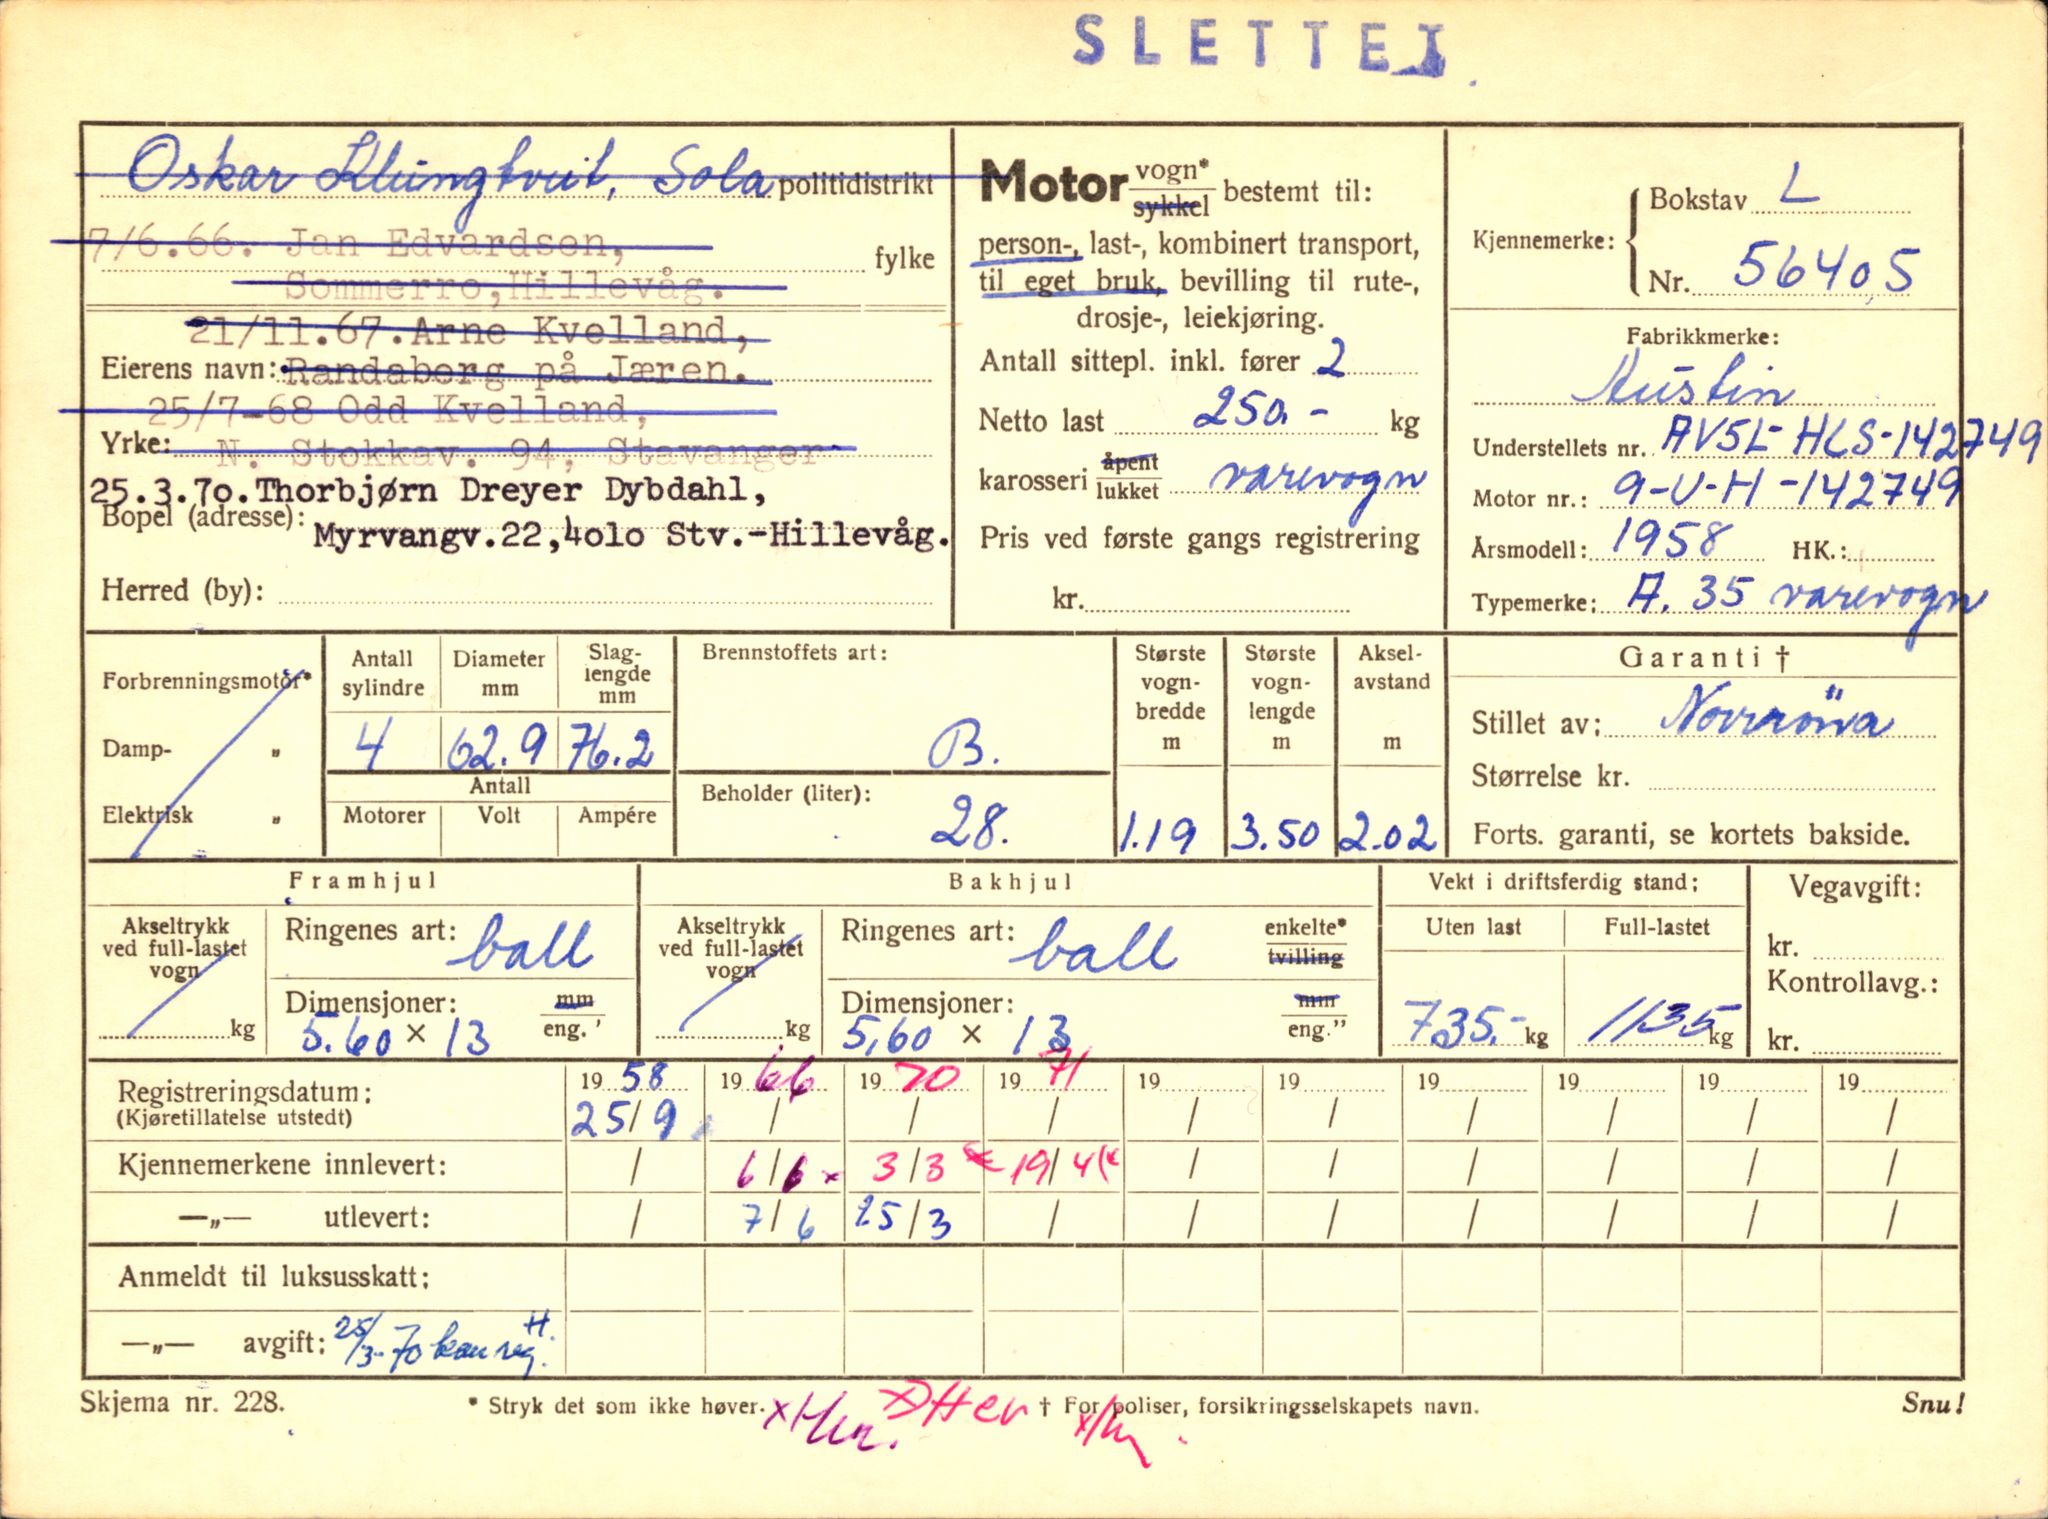 SLETTET
Oskar Klungtveit, Sola politidistrikt
7/6.66. Jan Edvardsen,
fylke
Sommerro, Hillevåg.
21/11.67. Arne Kvelland,
Eierens navn: Randaberg på Jæren.
25/7-68 Odd Kvelland,
Yrke: N. Stokkav. 94, Stavanger
25.3.70. Thorbjørn Dreyer Dybdahl,
Bopel (adresse): Myrvangv.22,4010 Stv.-Hillevåg.
Herred (by):
Motor vogn* sykkel bestemt til:
person-, last-, kombinert transport,
til eget bruk, bevilling til rute-,
drosje-, leiekjøring.
Antall sittepl. inkl. fører 2
Netto last 250.- kg
karosseri åpent lukket varevogn
Pris ved første gangs registrering
kr.
Kjennemerke: Bokstav L
Nr. 56405
Fabrikkmerke:
Austin
Understellets nr. AV5L-HCS-142749
Motor nr.: 9-U-H-142749
Årsmodell: 1958 HK.:
Typemerke: A. 35 varevogn
Forbrenningsmotor*
Damp- "
Elektrisk "
Antall sylindre 4
Diameter mm 62.9
Slag-lengde mm 76.2
Antall
Motorer Volt Ampére
Brennstoffets art:
B.
Beholder (liter):
28.
Største vogn-bredde m 1.19
Største vogn-lengde m 3.50
Aksel-avstand m 2.02
Garanti †
Stillet av: Norrøna
Størrelse kr.
Forts. garanti, se kortets bakside.
Framhjul
Akseltrykk ved full-lastet vogn kg
Ringenes art: ball
Dimensjoner: mm eng."
5.60 × 13
Bakhjul
Akseltrykk ved full-lastet vogn kg
Ringenes art: ball enkelte* tvilling
Dimensjoner: mm eng."
5,60 × 13
Vekt i driftsferdig stand:
Uten last Full-lastet
735.- kg 1135 kg
Vegavgift:
kr.
Kontrollavg.:
kr.
Registreringsdatum: 1958 1966 1970 1971 19 19 19 19 19 19
(Kjøretillatelse utstedt) 25/9 / / / / / / / / /
Kjennemerkene innlevert: / 6/6 x 3/3 x 19/4 (x / / / / / /
—„— utlevert: / 7/6 25/3 / / / / / / /
Anmeldt til luksusskatt:
—„— avgift: 25/3-70 kan reg. H.
Skjema nr. 228.
* Stryk det som ikke høver.
† For poliser, forsikringsselskapets navn.
Snu!